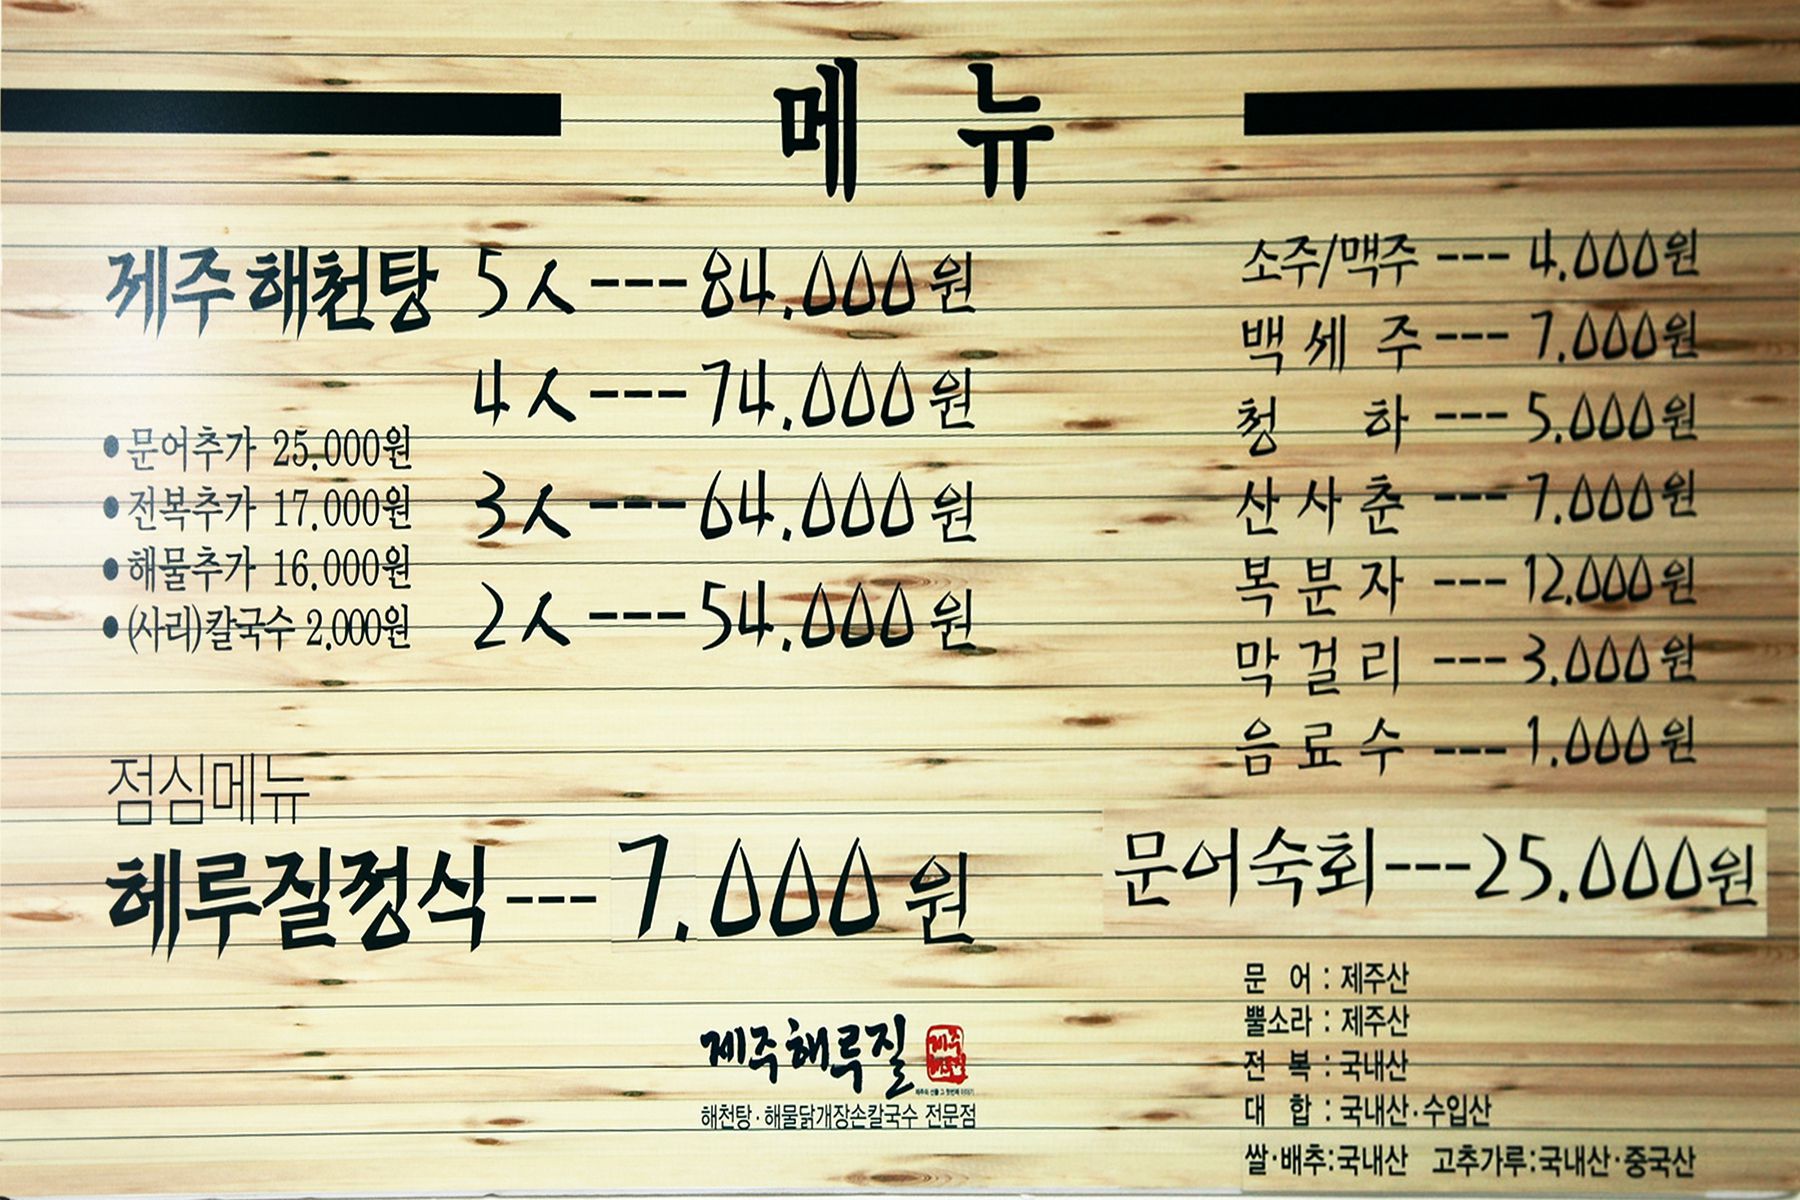 메 뉴
제주해천탕 5人---84.000원
4人---74.000원
3人---64.000원
2人---54.000원
•문어추가 25.000원
•전복추가 17.000원
•해물추가 16.000원
•(사리)칼국수 2.000원
점심메뉴
헤루질정식---7.000원
소주/맥주---4.000원
백세주---7.000원
청 하---5.000원
산사춘---7.000원
복분자---12.000원
막걸리---3.000원
음료수---1.000원
문어숙회---25.000원
문 어 : 제주산
뿔소라 : 제주산
전 복 : 국내산
대 합 : 국내산·수입산
쌀·배추:국내산 고추가루:국내산·중국산
제주해루질
해천탕·해물닭개장손칼국수 전문점